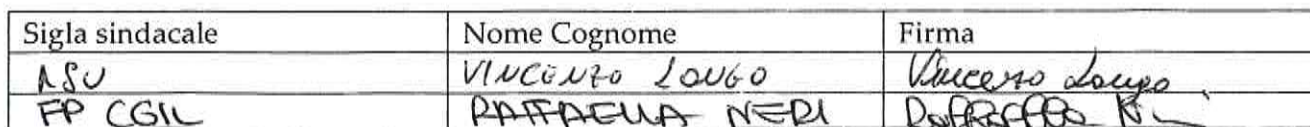 Sigla sindacale Nome Cognome Firma
RSU VINCENZO LONGO Vincenzo Longo
FP CGIL RAFFAELLA NERI Raffaella N